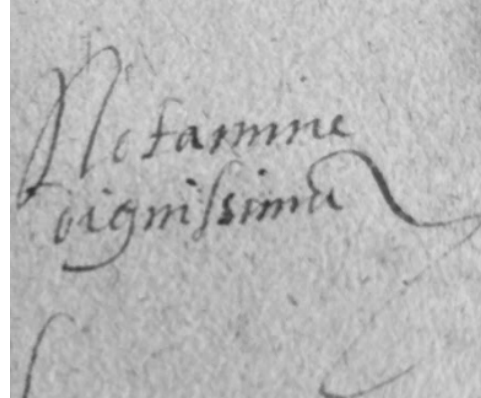 Notamine
dignissima